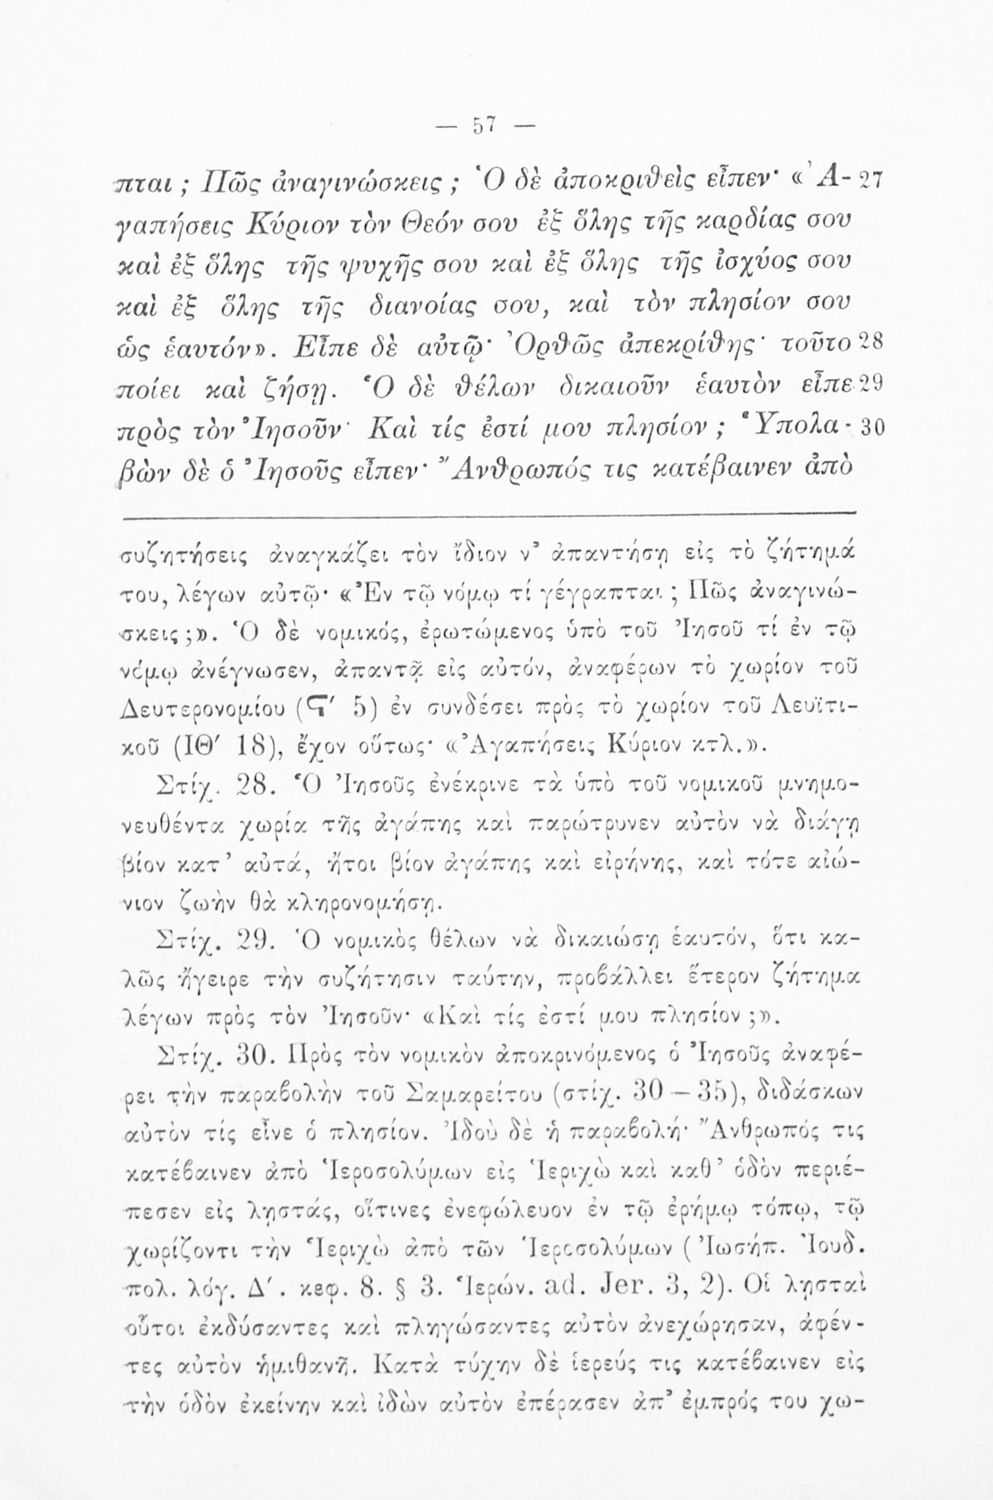 — 57 —
πται ; Πῶς ἀναγινώσκεις ; Ὁ δὲ ἀποκριθεὶς εἶπεν· « Ἀ- 27
γαπήσεις Κύριον τὸν Θεόν σου ἐξ ὅλης τῆς καρδίας σου
καὶ ἐξ ὅλης τῆς ψυχῆς σου καὶ ἐξ ὅλης τῆς ἰσχύος σου
καὶ ἐξ ὅλης τῆς διανοίας σου, καὶ τὸν πλησίον σου
ὡς ἑαυτόν». Εἶπε δὲ αὐτῷ· Ὀρθῶς ἀπεκρίθης· τοῦτο 28
ποίει καὶ ζήσῃ. Ὁ δὲ θέλων δικαιοῦν ἑαυτὸν εἶπε 29
πρὸς τὸν Ἰησοῦν· Καὶ τίς ἐστί μου πλησίον ; Ὑπολα- 30
βὼν δὲ ὁ Ἰησοῦς εἶπεν· Ἄνθρωπός τις κατέβαινεν ἀπὸ
συζητήσεις ἀναγκάζει τὸν ἴδιον ν᾽ ἀπαντήσῃ εἰς τὸ ζήτημά
του, λέγων αὐτῷ· «Ἐν τῷ νόμῳ τί γέγραπται ; Πῶς ἀναγινώ-
σκεις ;». Ὁ δὲ νομικός, ἐρωτώμενος ὑπὸ τοῦ Ἰησοῦ τί ἐν τῷ
νόμῳ ἀνέγνωσεν, ἀπαντᾷ εἰς αὐτόν, ἀναφέρων τὸ χωρίον τοῦ
Δευτερονομίου (Ϛʹ 5) ἐν συνδέσει πρὸς τὸ χωρίον τοῦ Λευϊτι-
κοῦ (ΙΘʹ 18), ἔχον οὕτως· «Ἀγαπήσεις Κύριον κτλ.».
Στίχ. 28. Ὁ Ἰησοῦς ἐνέκρινε τὰ ὑπὸ τοῦ νομικοῦ μνημο-
νευθέντα χωρία τῆς ἀγάπης καὶ παρώτρυνεν αὐτὸν νὰ διάγῃ
βίον κατ᾽ αὐτά, ἤτοι βίον ἀγάπης καὶ εἰρήνης, καὶ τότε αἰώ-
νιον ζωὴν θὰ κληρονομήσῃ.
Στίχ. 29. Ὁ νομικὸς θέλων νὰ δικαιώσῃ ἑαυτόν, ὅτι κα-
λῶς ἤγειρε τὴν συζήτησιν ταύτην, προβάλλει ἕτερον ζήτημα
λέγων πρὸς τὸν Ἰησοῦν· «Καὶ τίς ἐστί μου πλησίον ;».
Στίχ. 30. Πρὸς τὸν νομικὸν ἀποκρινόμενος ὁ Ἰησοῦς ἀναφέ-
ρει τὴν παραβολὴν τοῦ Σαμαρείτου (στίχ. 30 — 35), διδάσκων
αὐτὸν τίς εἶνε ὁ πλησίον. Ἰδοὺ δὲ ἡ παραβολή· Ἄνθρωπός τις
κατέβαινεν ἀπὸ Ἱεροσολύμων εἰς Ἱεριχὼ καὶ καθ᾽ ὁδὸν περιέ-
πεσεν εἰς λῃστάς, οἵτινες ἐνεφώλευον ἐν τῷ ἐρήμῳ τόπῳ, τῷ
χωρίζοντι τὴν Ἱεριχὼ ἀπὸ τῶν Ἱεροσολύμων ( Ἰωσήπ. Ἰουδ.
πολ. λόγ. Δʹ. κεφ. 8. § 3. Ἱερών. ad. Jer. 3, 2). Οἱ λῃσταὶ
οὗτοι ἐκδύσαντες καὶ πληγώσαντες αὐτὸν ἀνεχώρησαν, ἀφέν-
τες αὐτὸν ἡμιθανῆ. Κατὰ τύχην δὲ ἱερεύς τις κατέβαινεν εἰς
τὴν ὁδὸν ἐκείνην καὶ ἰδὼν αὐτὸν ἐπέρασεν ἀπ᾽ ἐμπρός του χω-